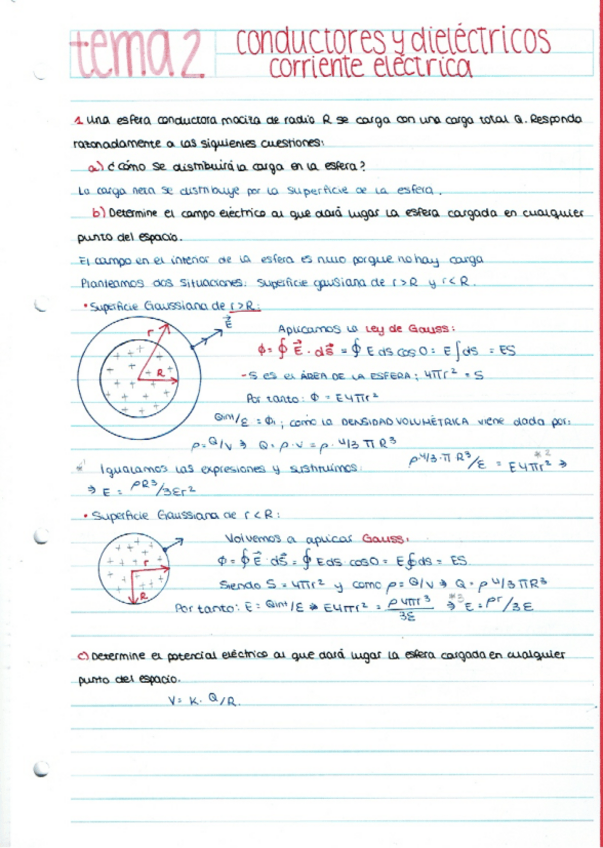 tema 2 conductores y dieléctricos
corriente eléctrica
1. Una esfera conductora maciza de radio R se carga con una carga total Q. Responda
razonadamente a las siguientes cuestiones:
a) ¿Cómo se distribuirá la carga en la esfera?
La carga neta se distribuye por la superficie de la esfera.
b) Determine el campo eléctrico al que dará lugar la esfera cargada en cualquier
punto del espacio.
El campo en el interior de la esfera es nulo porque no hay carga
Planteamos dos situaciones: Superficie gaussiana de r>R y r<R.
• Superficie Gaussiana de r>R:
r
R
E⃗
Aplicamos la Ley de Gauss:
Φ = ∮ E⃗ · ds⃗ = ∮ E ds cos 0 = E ∫ ds = ES
- S es el ÁREA DE LA ESFERA; 4πr² = S
Por tanto: Φ = E4πr²
Qint/ε = Φ; como la DENSIDAD VOLUMÉTRICA viene dada por:
ρ = Q/V → Q = ρ · V = ρ · 4/3 π R³
*1 Igualamos las expresiones y sustituimos: ρ4/3·π R³/ε = E4πr² *2 ⇒
⇒ E = ρR³/3εr²
• Superficie Gaussiana de r<R:
r
R
Volvemos a aplicar Gauss:
Φ = ∮ E⃗ · ds⃗ = ∮ E ds cos 0 = E ∮ ds = ES
Siendo S = 4πr² y como ρ = Q/V → Q = ρ 4/3 πR³
Por tanto: E = Qint/ε ⇒ E4πr² = ρ4πr³/3ε *3 ⇒ E = ρr/3ε
c) Determine el potencial eléctrico al que dará lugar la esfera cargada en cualquier
punto del espacio.
V = K · Q/R.